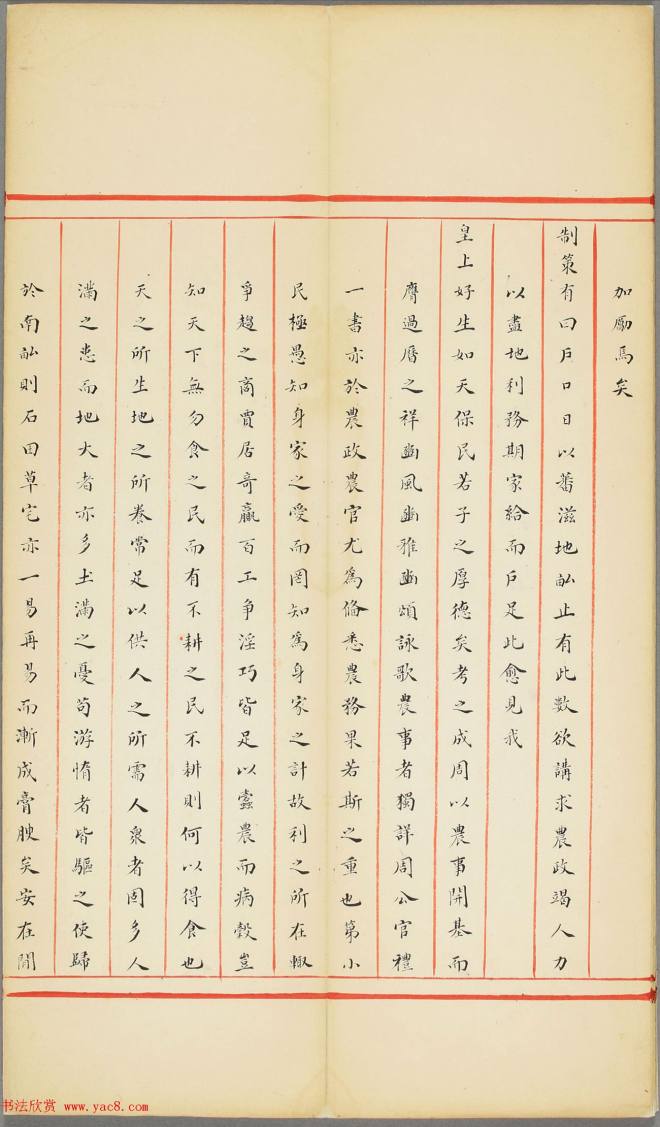 加勵焉矣
制策有曰戶口日以蕃滋地畝止有此數欲講求農政竭人力
以盡地利務期家給而戶足此愈見我
皇上好生如天保民若子之厚德矣考之成周以農事開基而
膺過曆之祥豳風豳雅豳頌詠歌農事者獨詳周公官禮
一書亦於農政農官尤為偹悉農務果若斯之重也第小
民極愚知身家之愛而罔知為身家之計故利之所在輙
爭趨之商賈居奇贏百工爭淫巧皆足以蠹農而病穀豈
知天下無勿食之民而有不耕之民不耕則何以得食也
天之所生地之所養常足以供人之所需人衆者固多人
滿之患而地大者亦多土滿之憂苟游惰者皆驅之使歸
於南畝則石田草宅亦一易再易而漸成膏腴矣安在閒
书法欣赏 www.yac8.com